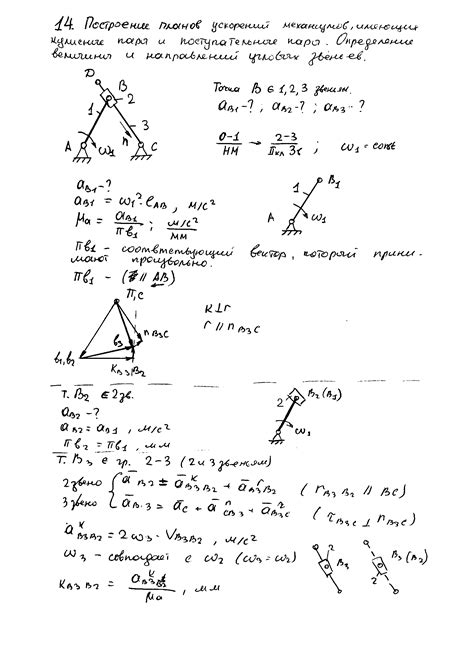 14. Построение планов ускорений механизмов, имеющих
кулисные пары и поступательные пары. Определение
величины и направлений угловых звеньев.
D
B
2
1
3
n
A
ω1
C
Точка B ∈ 1, 2, 3 звеньям.
aB1-?, aB2-?; aB3-?
0-1/НМ → 2-3/IIкл 3г; ω1=const
aB1-?
aB1 = ω1² · lAB, м/с²
μa = aB1/πв1; м/с²/мм
1
B1
A
ω1
πв1 - соответствующий вектор, который прини-
мают произвольно.
πв1 - (// AB)
π, c
в1, в2
в3
nB3C
кB3B2
к⊥r
r // nB3C
т. B2 ∈ 2 зв.
aB2-?
aB2 = aB1, м/с²
πв2 = πв1, мм
2
B2 (B1)
ω1
т. B3 ∈ гр. 2-3 (2 и 3 звеньям)
2 звено { āB2 ± āᵏB3B2 + āʳB3B2 (rB3B2 // BC)
3 звено { āB3 = āC + āⁿCB3 + āᶻB3C (τB3C ⊥ nB3C)
aᵏB3B2 = 2ω3 · VB3B2, м/с²
ω3 - совпадает с ω2 (ω3 = ω2)
кB3B2 = aᵏB3B2/μa, мм
2
B3
3
B3 (B2)
2